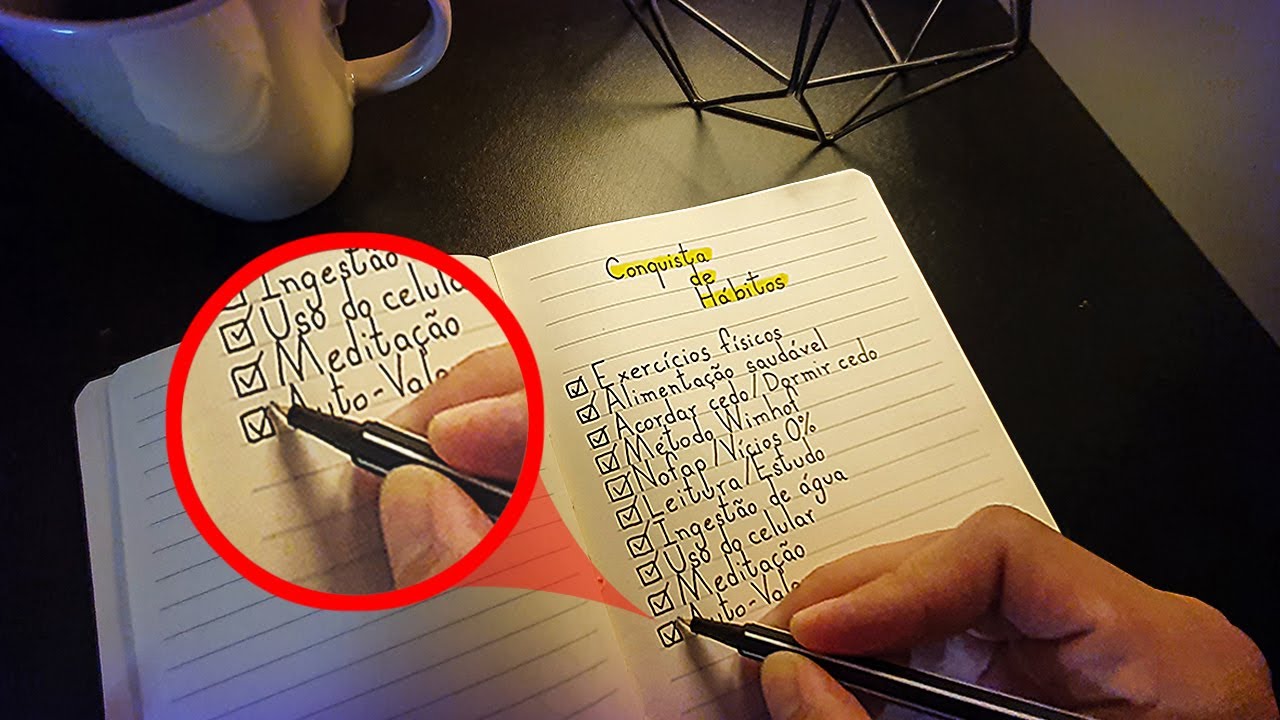 Conquista
de
Hábitos
Exercícios físicos
Alimentação saudável
Acordar cedo/Dormir cedo
Método Wimhof
Nofap/Vícios 0%
Leitura/Estudo
Ingestão de água
Uso do celular
Meditação
Auto-Valo
Ingestão
Uso do celula
Meditação
Auto-Valo